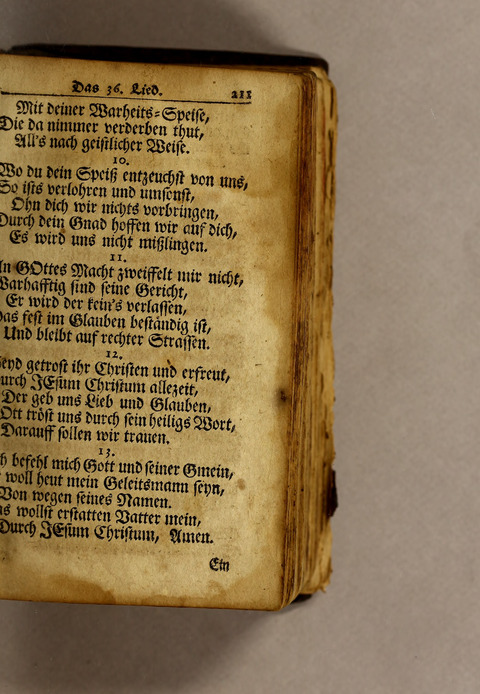 Das 36. Lied. 211
Mit deiner Warheits-Speise,
Die da nimmer verderben thut,
All's nach geistlicher Weise.
10.
Wo du dein Speiß entzeuchst von uns,
So ists verlohren und umsonst,
Ohn dich wir nichts vorbringen,
Durch dein Gnad hoffen wir auf dich,
Es wird uns nicht mißlingen.
11.
An GOttes Macht zweiffelt mir nicht,
Warhafftig sind seine Gericht,
Er wird der kein's verlassen,
Das fest im Glauben beständig ist,
Und bleibt auf rechter Strassen.
12.
Seyd getrost ihr Christen und erfreut,
Durch JEsum Christum allezeit,
Der geb uns Lieb und Glauben,
GOtt tröst uns durch sein heiligs Wort,
Darauff sollen wir trauen.
13.
Ich befehl mich Gott und seiner Gmein,
woll heut mein Geleitsmann seyn,
Von wegen seines Namen.
Das wollst erstatten Vatter mein,
Durch JEsum Christum, Amen.
Ein